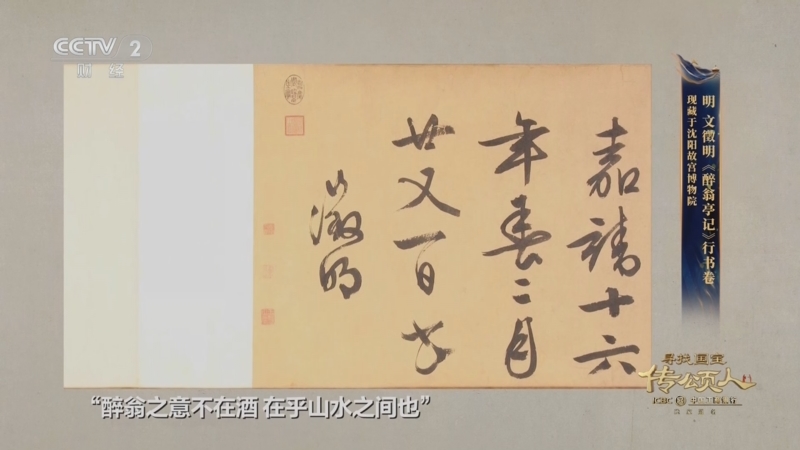 CCTV 2
财经
嘉靖十六
年春二月
廿又一日书
徵明
明 文徵明《醉翁亭记》行书卷
现藏于沈阳故宫博物院
寻找国宝
传颂人
ICBC
“醉翁之意不在酒 在乎山水之间也”